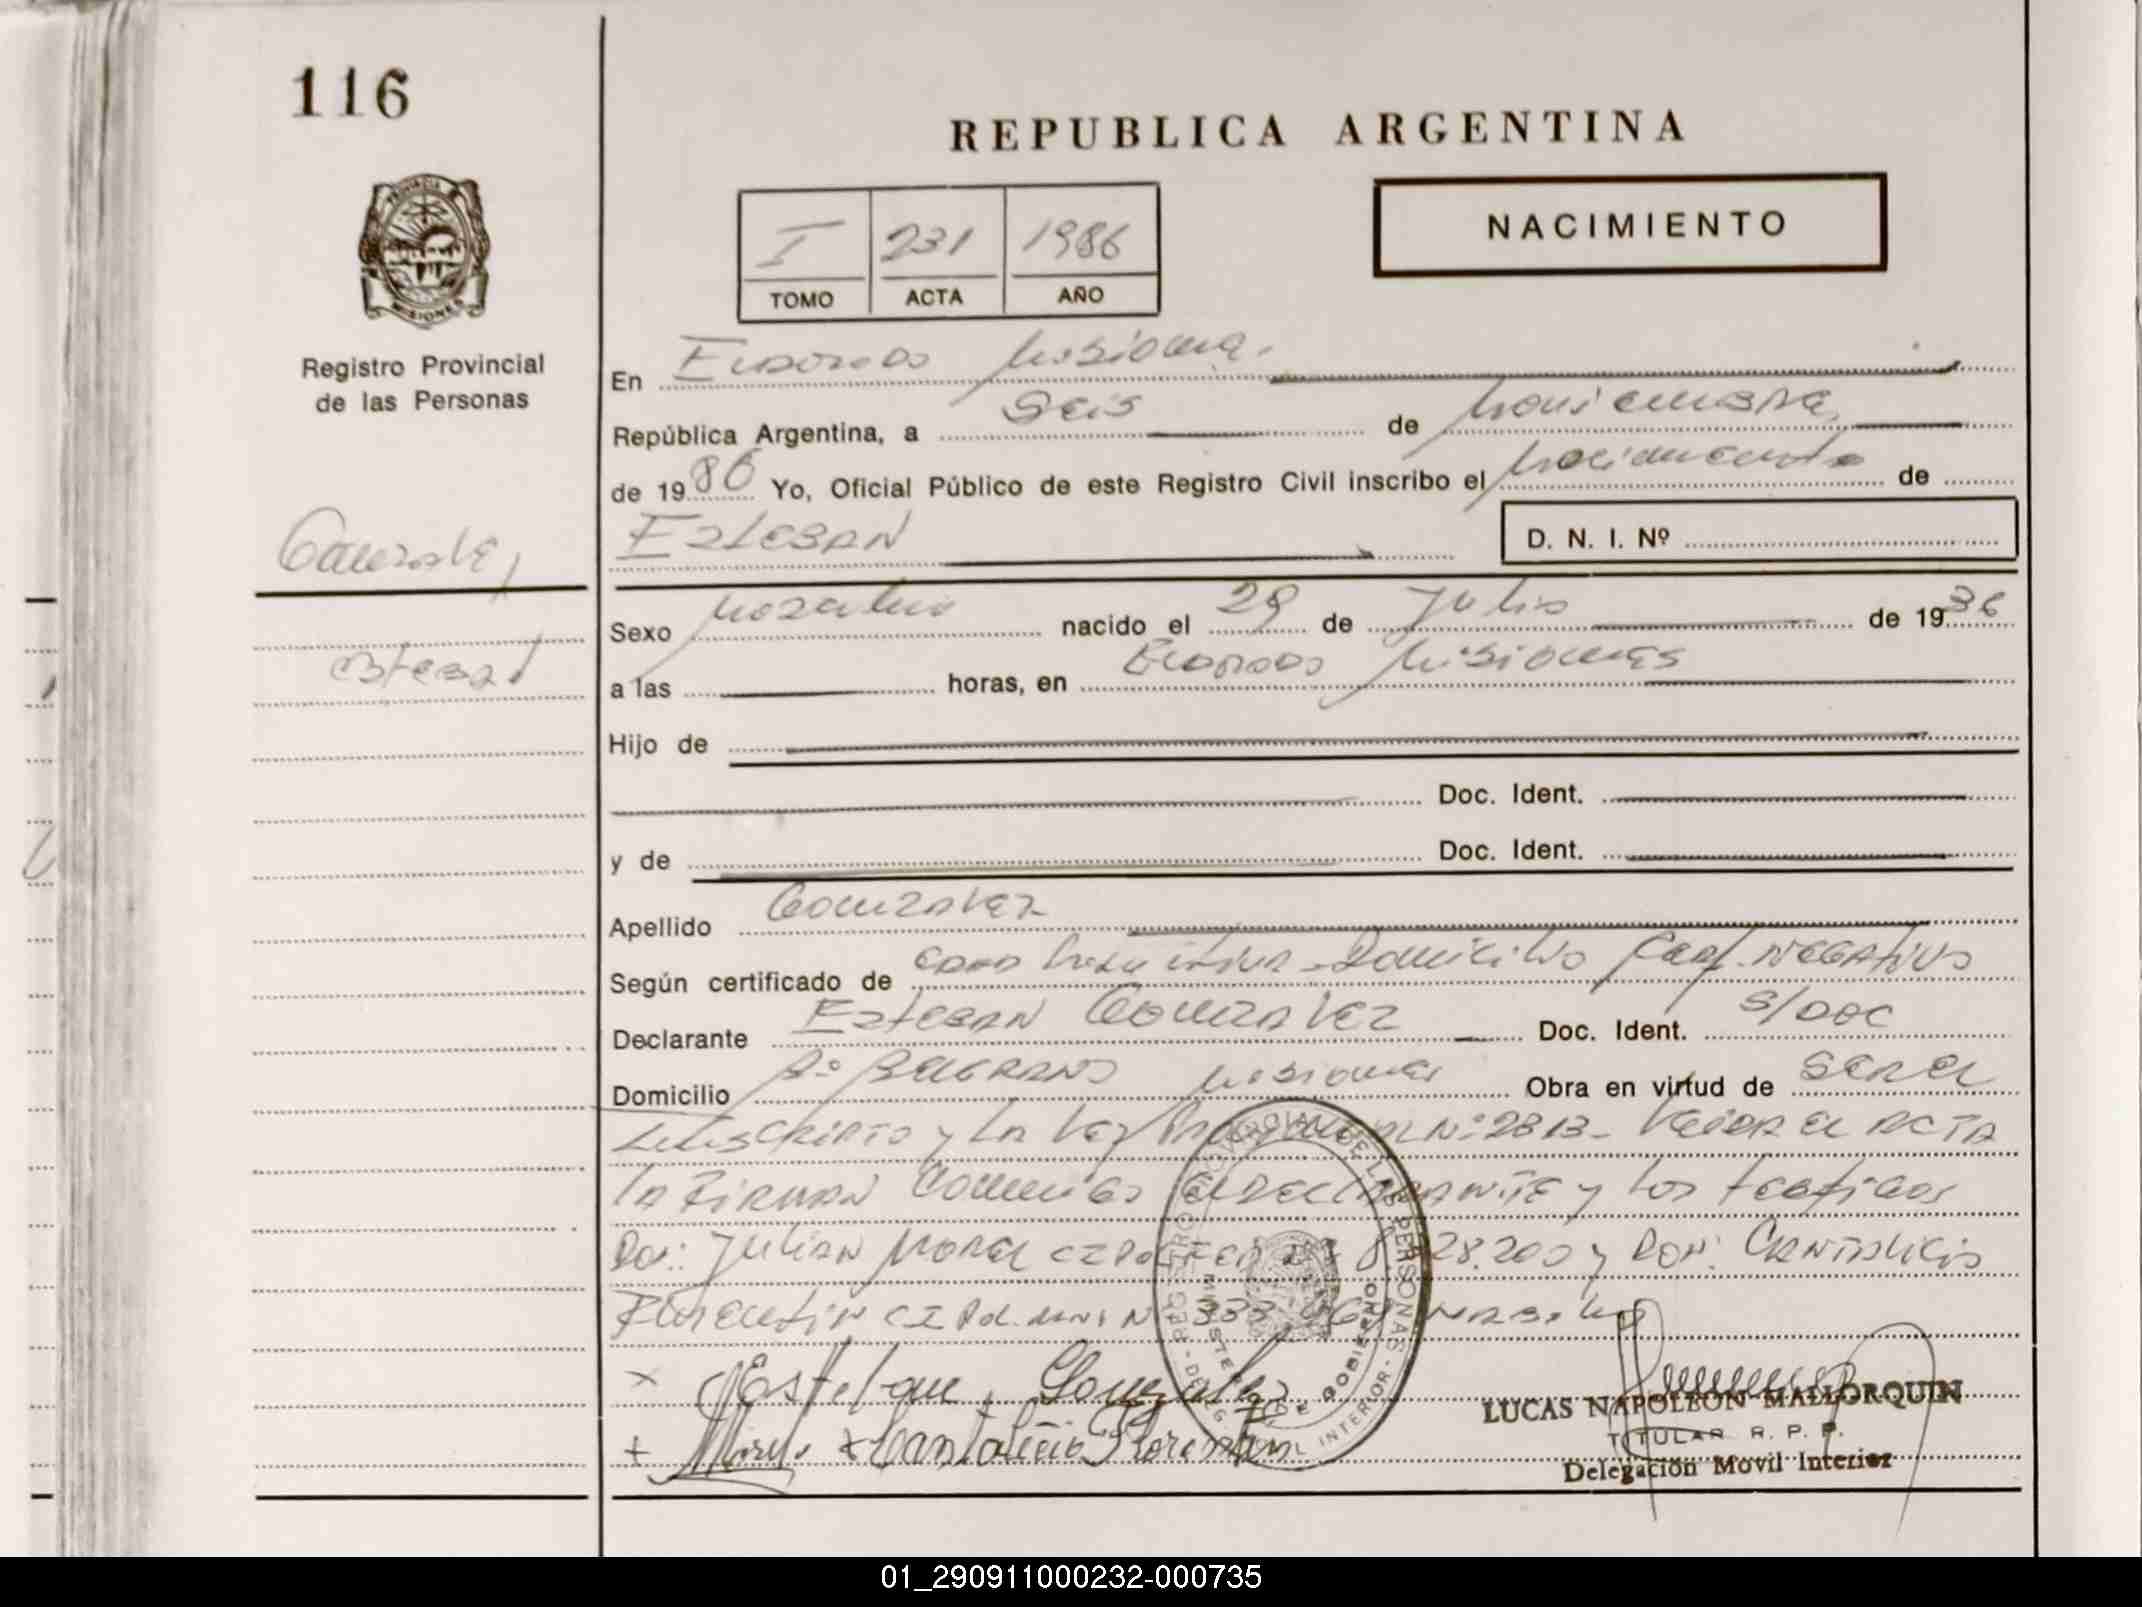 116
REPUBLICA ARGENTINA
I 231 1986
TOMO ACTA AÑO
NACIMIENTO
PROVINCIA
MISIONES
Registro Provincial
de las Personas
En Misiones
República Argentina, a Seis de
de 1986 Yo, Oficial Público de este Registro Civil inscribo el Nacimiento de
Esteban
D. N. I. Nº
Gonzalez
Esteban
Sexo Masculino nacido el 29 de Julio de 1936
a las horas, en Misiones
Hijo de
Doc. Ident.
y de Doc. Ident.
Apellido Gonzalez
Según certificado de Domicilio Negativo
Declarante Esteban Gonzalez Doc. Ident. S/DOC
Domicilio Bº BELGRANO Misiones Obra en virtud de SER EL
Inscripto y la Ley Nº 2813- Leida el ACTA
la Firman Conmigo el Declarante y los testigos
Don: Julian 28.200 y Don: Cantalicio
Florentin C I Pol. Mnes Nº 333
x Gonzalez
+ x Cantalicio Florentin
REGISTRO PROVINCIAL DE LAS PERSONAS
MINISTERIO DE GOBIERNO
LUCAS NAPOLEON MALLORQUIN
TITULAR R. P. P.
Delegación Movil Interior
01_290911000232-000735